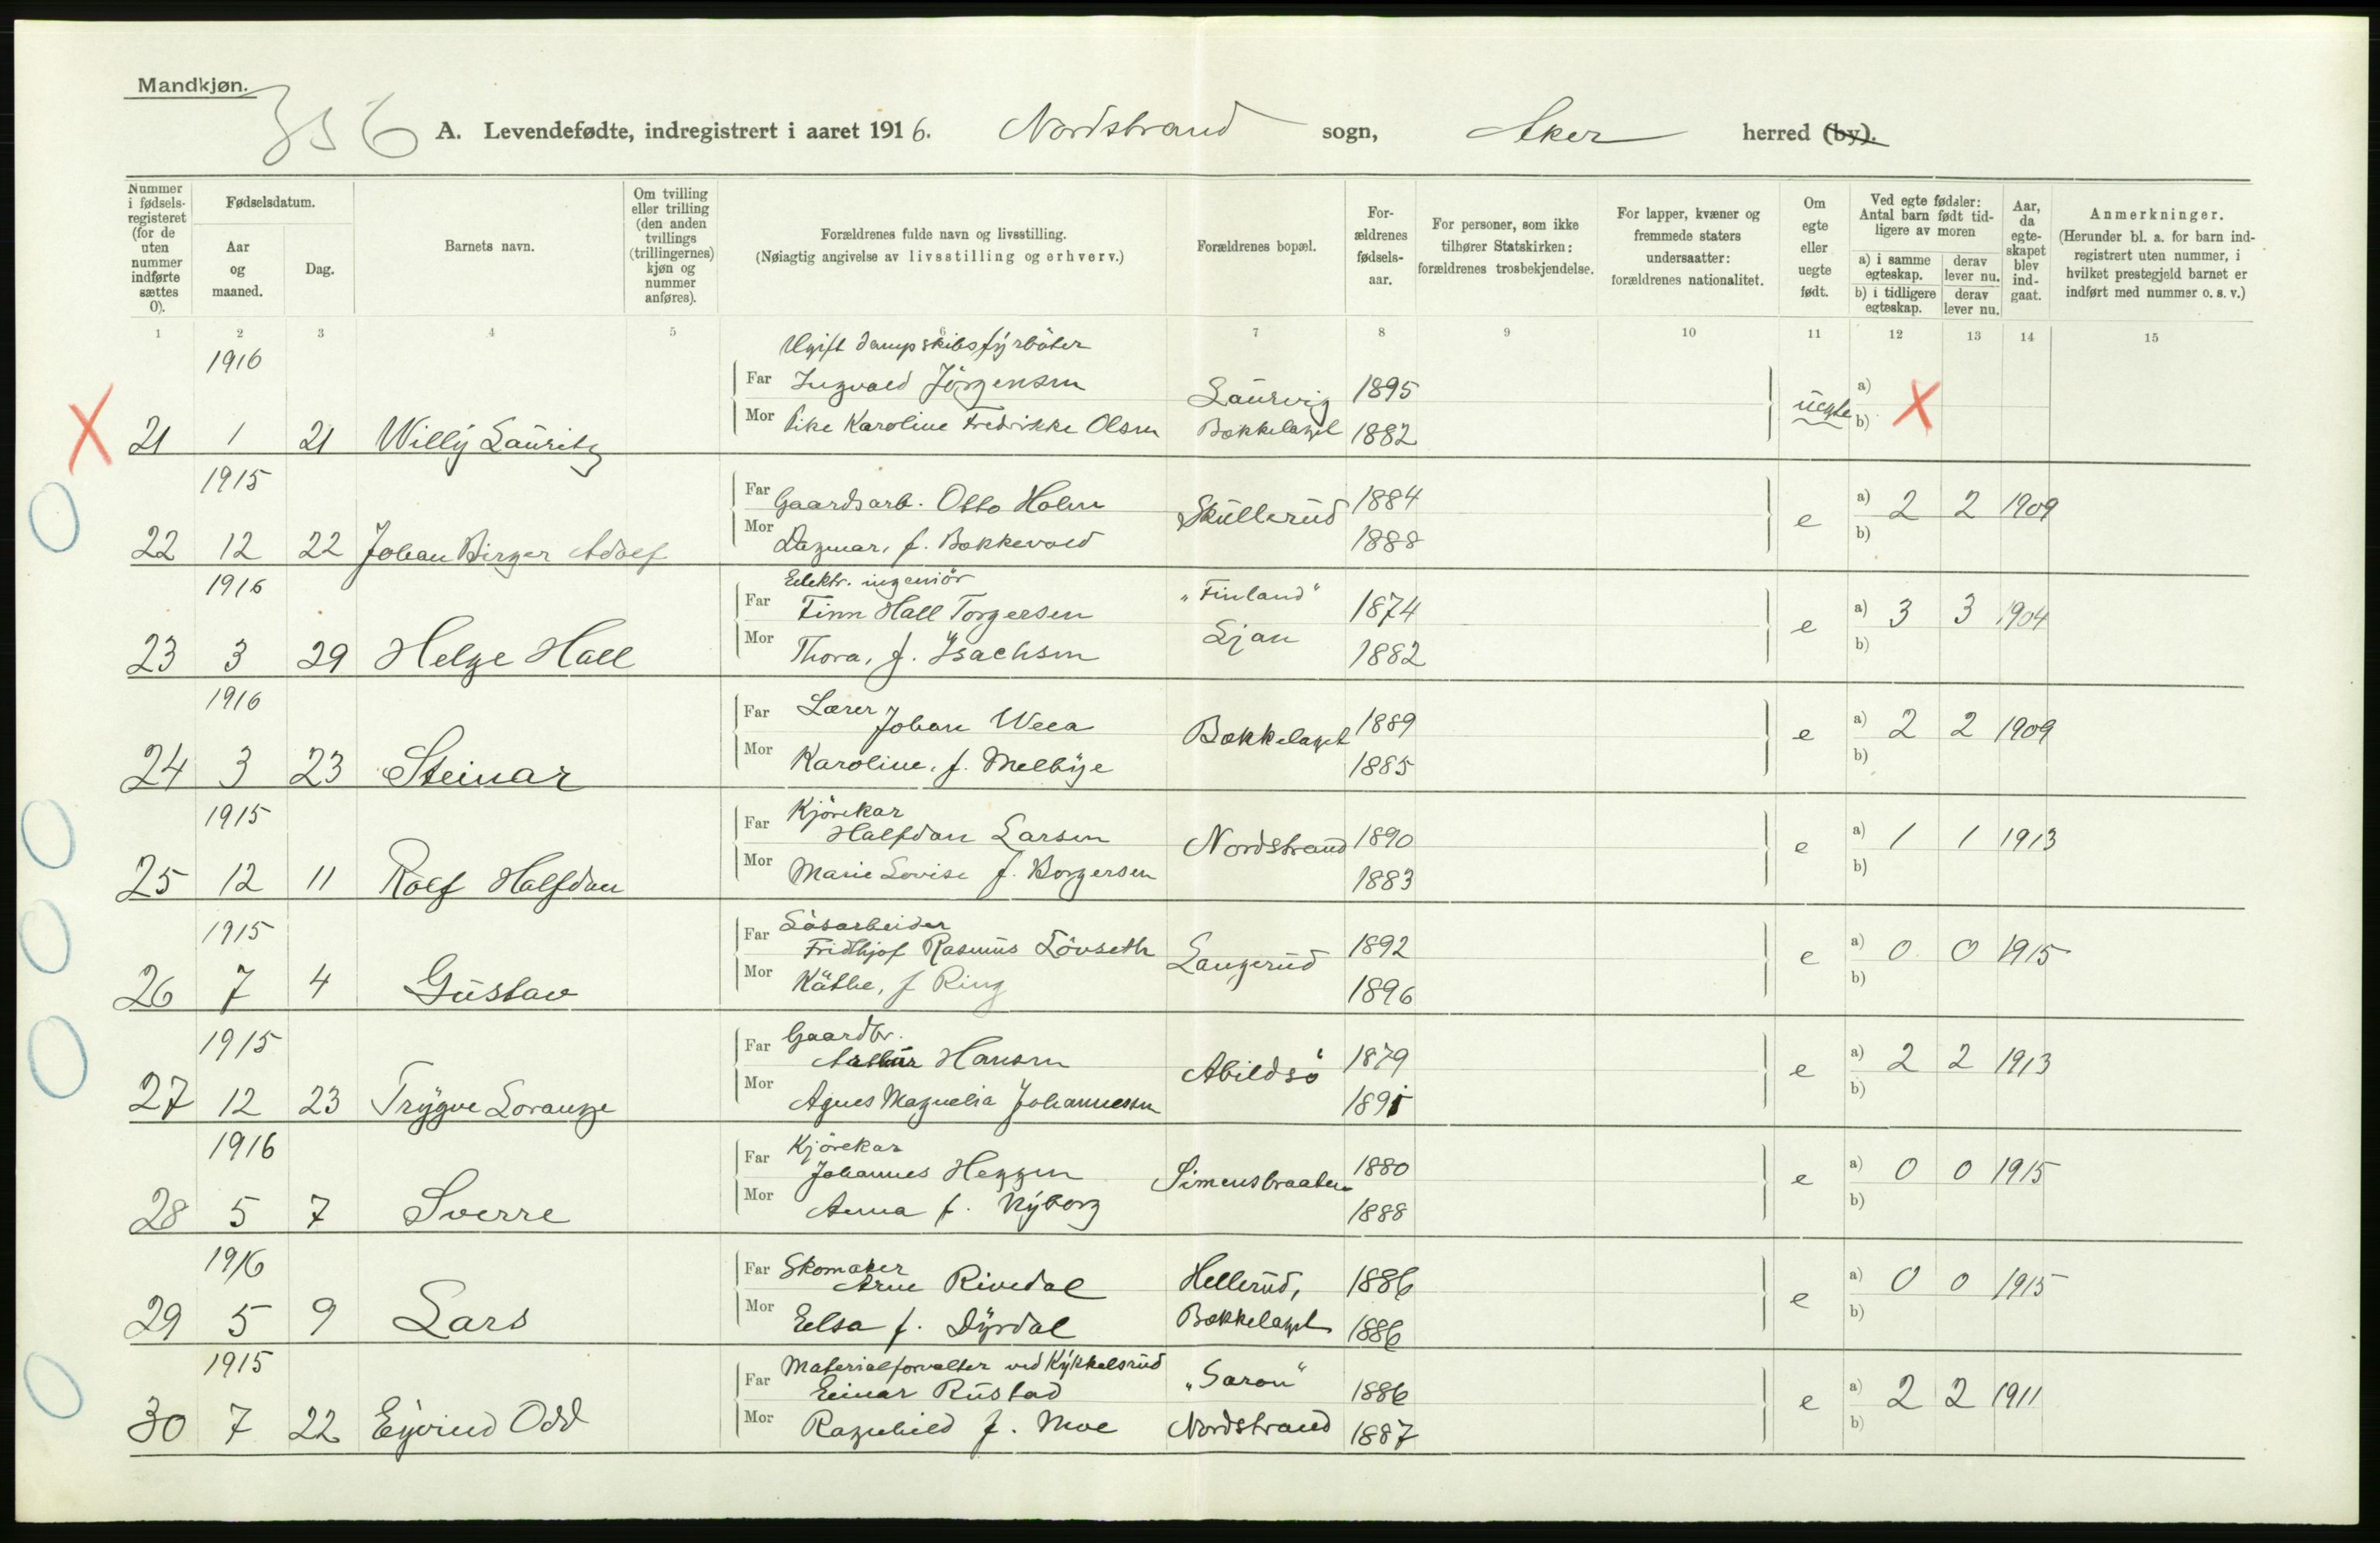 Mandkjøn.
356
A. Levendefødte, indregistrert i aaret 1916. Nordstrand sogn, Aker herred (by).
Nummer i fødselsregisteret (for de uten nummer indførte sættes 0).
Fødselsdatum.
Aar og maaned.
Dag.
Barnets navn.
Om tvilling eller trilling (den anden tvillings (trillingernes) kjøn og nummer anføres).
Forældrenes fulde navn og livsstilling.
(Nøiagtig angivelse av livsstilling og erhverv.)
Forældrenes bopæl.
Forældrenes fødselsaar.
For personer, som ikke tilhører Statskirken: forældrenes trosbekjendelse.
For lapper, kvæner og fremmede staters undersaatter: forældrenes nationalitet.
Om egte eller uegte født.
Ved egte fødsler: Antal barn født tidligere av moren
a) i samme egteskap. derav lever nu.
b) i tidligere egteskap. derav lever nu.
Aar, da egteskapet blev indgaat.
Anmerkninger.
(Herunder bl. a. for barn indregistrert uten nummer, i hvilket prestegjeld barnet er indført med nummer o. s. v.)
1 2 3 4 5 6 7 8 9 10 11 12 13 14 15
1916 Ugift dampskibsfyrbøter
Far Ingvald Jörgensen Laurvig 1895 uegte a)
Mor Pike Karoline Fredrikke Olsen Bækkelaget 1882 b)
21 1 21 Willy Lauritz
1915
Far Gaardsarb. Otto Holm Skullerud 1884 e a) 2 2 1909
Mor Dagmar, f. Bakkevold 1888 b)
22 12 22 Johan Birger Adolf
1916 Elektr. ingeniör
Far Finn Hall Torgersen „Finland" 1874 e a) 3 3 1904
Mor Thora, f. Isachsen Ljan 1882 b)
23 3 29 Helge Hall
1916
Far Lærer Johan Weea Bækkelaget 1889 e a) 2 2 1909
Mor Karoline, f. Melbye 1885 b)
24 3 23 Steinar
1915 Kjörekar
Far Halfdan Larsen Nordstrand 1890 e a) 1 1 1913
Mor Marie Lovise f. Borgersen 1883 b)
25 12 11 Rolf Halfdan
1915 Løsarbeider
Far Fridthjof Rasmus Lövseth Langerud 1892 e a) 0 0 1915
Mor Käthe, f Ring 1896 b)
26 7 4 Gustav
1915 Gaardbr.
Far Arthur Hansen Abildsö 1879 e a) 2 2 1913
Mor Agnes Magnelia Johannessen 1891 b)
27 12 23 Trygve Lorange
1916 Kjörekar
Far Johannes Heggen Simensbraaten 1880 e a) 0 0 1915
Mor Anna f. Nyborg 1888 b)
28 5 7 Sverre
1916 Skomaker
Far Arne Rivedal Hellerud, 1886 e a) 0 0 1915
Mor Elsa f. Dyrdal Bækkelaget 1886 b)
29 5 9 Lars
1915 Materialforvalter ved Kykkelsrud
Far Einar Rustad „Saron" 1886 e a) 2 2 1911
Mor Ragnhild f. Moe Nordstrand 1887 b)
30 7 22 Eyvind Odd